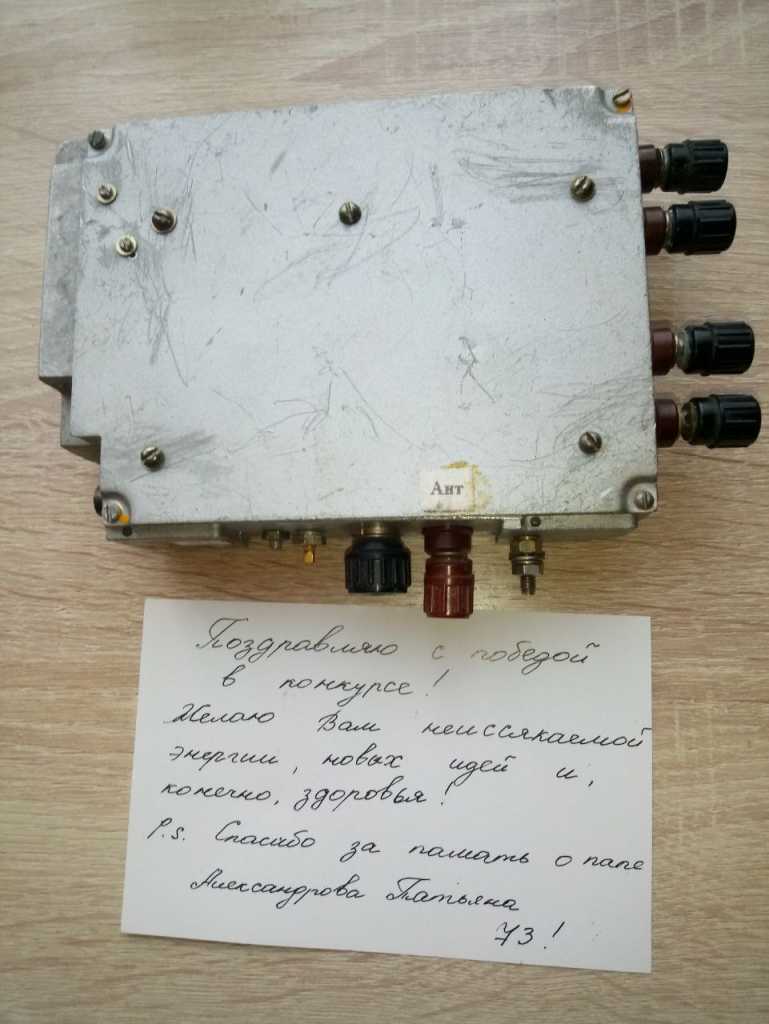 Ант
Поздравляю с победой
в конкурсе!
Желаю Вам неиссякаемой
энергии, новых идей и,
конечно, здоровья!
P.s. Спасибо за память о папе
Александрова Татьяна
73!